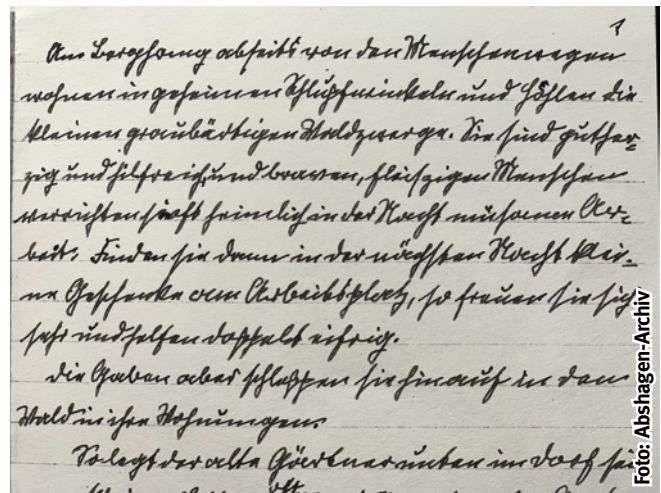 1
Am Berghang abseits von den Menschenwegen
wohnen in geheimen Schlupfwinkeln und Höhlen die
kleinen graubärtigen Waldzwerge. Sie sind guther-
zig und hilfreich, und braven, fleißigen Menschen
verrichten sie oft heimlich in der Nacht mühsame Ar-
beit. Finden sie dann in der nächsten Nacht klei-
ne Geschenke am Arbeitsplatz, so freuen sie sich
sehr und helfen doppelt eifrig.
Die Gaben aber schleppen sie hinauf in den
Wald in ihre Wohnungen.
So legt der alte Gärtner unten im Dorf
Foto: Abshagen-Archiv